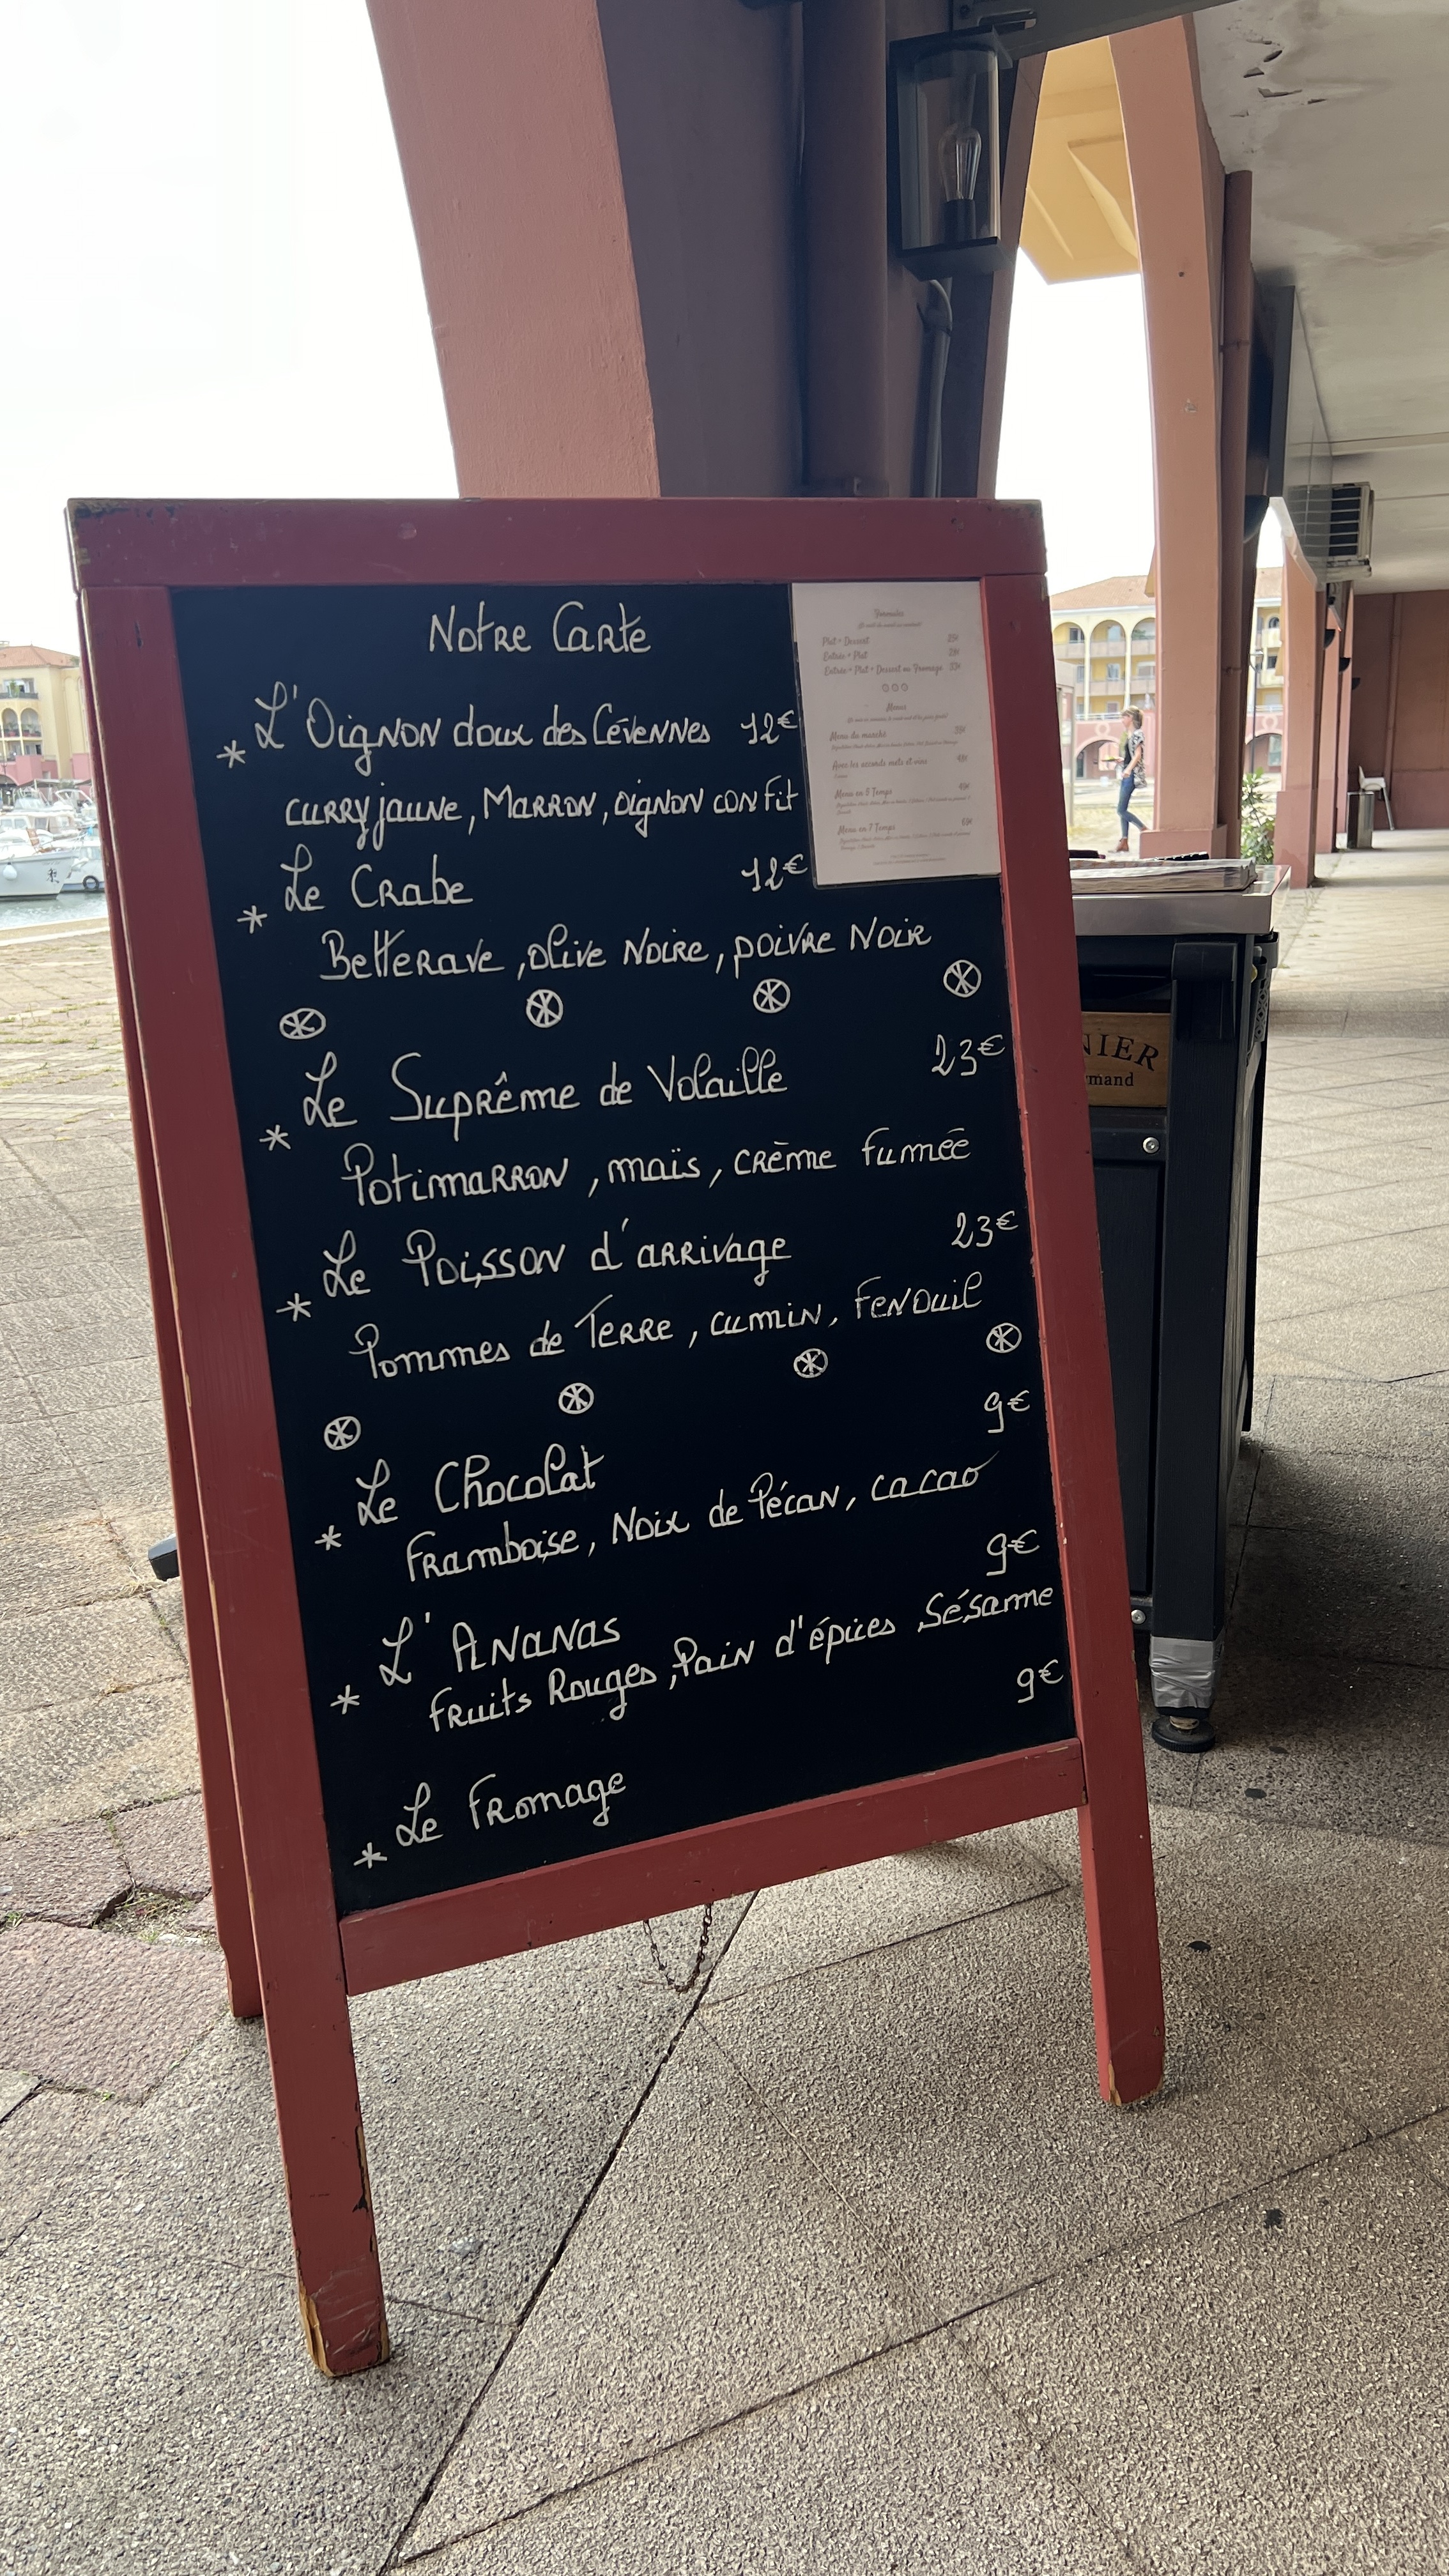 Notre Carte
* L'Oignon doux des Cévennes 12€
curry jaune, Marron, oignon confit
* Le Crabe 12€
Betterave, olive Noire, poivre Noir
* Le Suprême de Volaille 23€
Potimarron, maïs, crème fumée
* Le Poisson d'arrivage 23€
Pommes de Terre, cumin, fenouil
* Le Chocolat 9€
Framboise, Noix de Pécan, cacao
* L'Ananas 9€
fruits Rouges, Pain d'épices Sésame
* Le fromage 9€
Formules
Plat + Dessert 25€
Entrée + Plat
Entrée + Plat + Dessert ou Fromage
Menus
Menu du marché
Avec les accords mets et vins
Menu en 5 Temps
Menu en 7 Temps
NIER
rmand